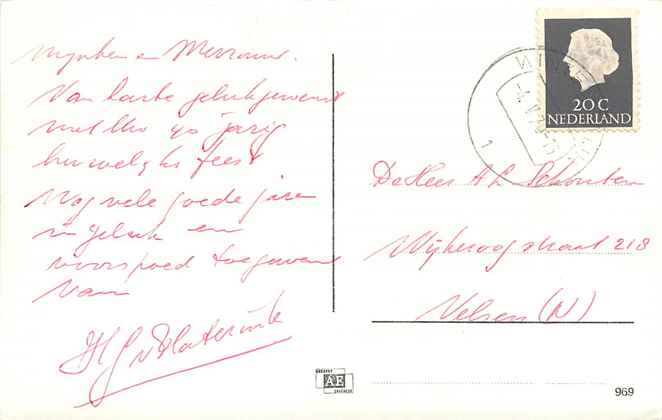 Mijnheer en Mevrouw.
Van harte gelukgewenst
met Uw 40 jarig
huwelijksfeest
Nog vele goede jaren
in geluk en
voorspoed toegewenst
van
20 C
NEDERLAND
1
De Heer A L Schouten
Wijkeroogstraat 218
Velsen (N)
AE
969